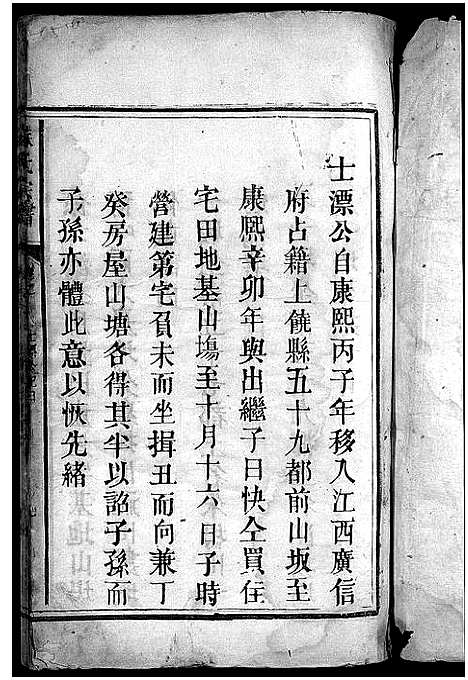 士漂公自康熙丙子年移入江西廣信
府占籍上饒縣五十九都前山坂至
康熙辛卯年與出繼子日快仝買住
宅田地基山塲至十月十六日子時
營建第宅負未而坐揖丑而向兼丁
癸房屋山塘各得其半以詔子孫而
子孫亦體此意以恢先緒